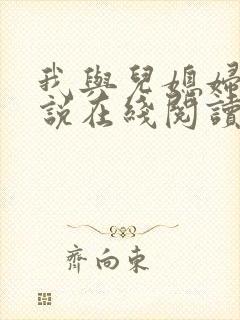 我與兒媳婦
說在綫閱讀
齊向東